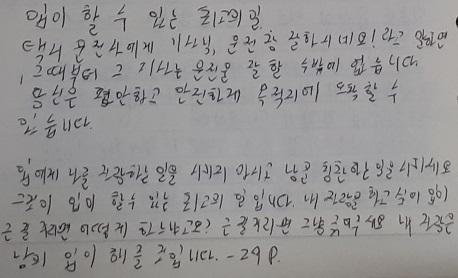 입이 할 수 있는 최고의 일.
택시 운전사에게 기사님, 운전 참 잘하시네요! 라고 말하면
그때부터 그 기사는 운전을 잘 할 수밖에 없습니다.
당신은 편안하고 안전하게 목적지에 도착할 수
있습니다.
입에게 나를 자랑하는 일을 시키지 마시고 남을 칭찬하는 일을 시키세요
그것이 입이 할 수 있는 최고의 일입니다. 내 자랑은 하고 싶어 입이
근질거리면 어떻게 하느냐고요? 근질거리면 그냥 두세요 내 자랑은
남의 입이 해줄 것입니다. -29P.